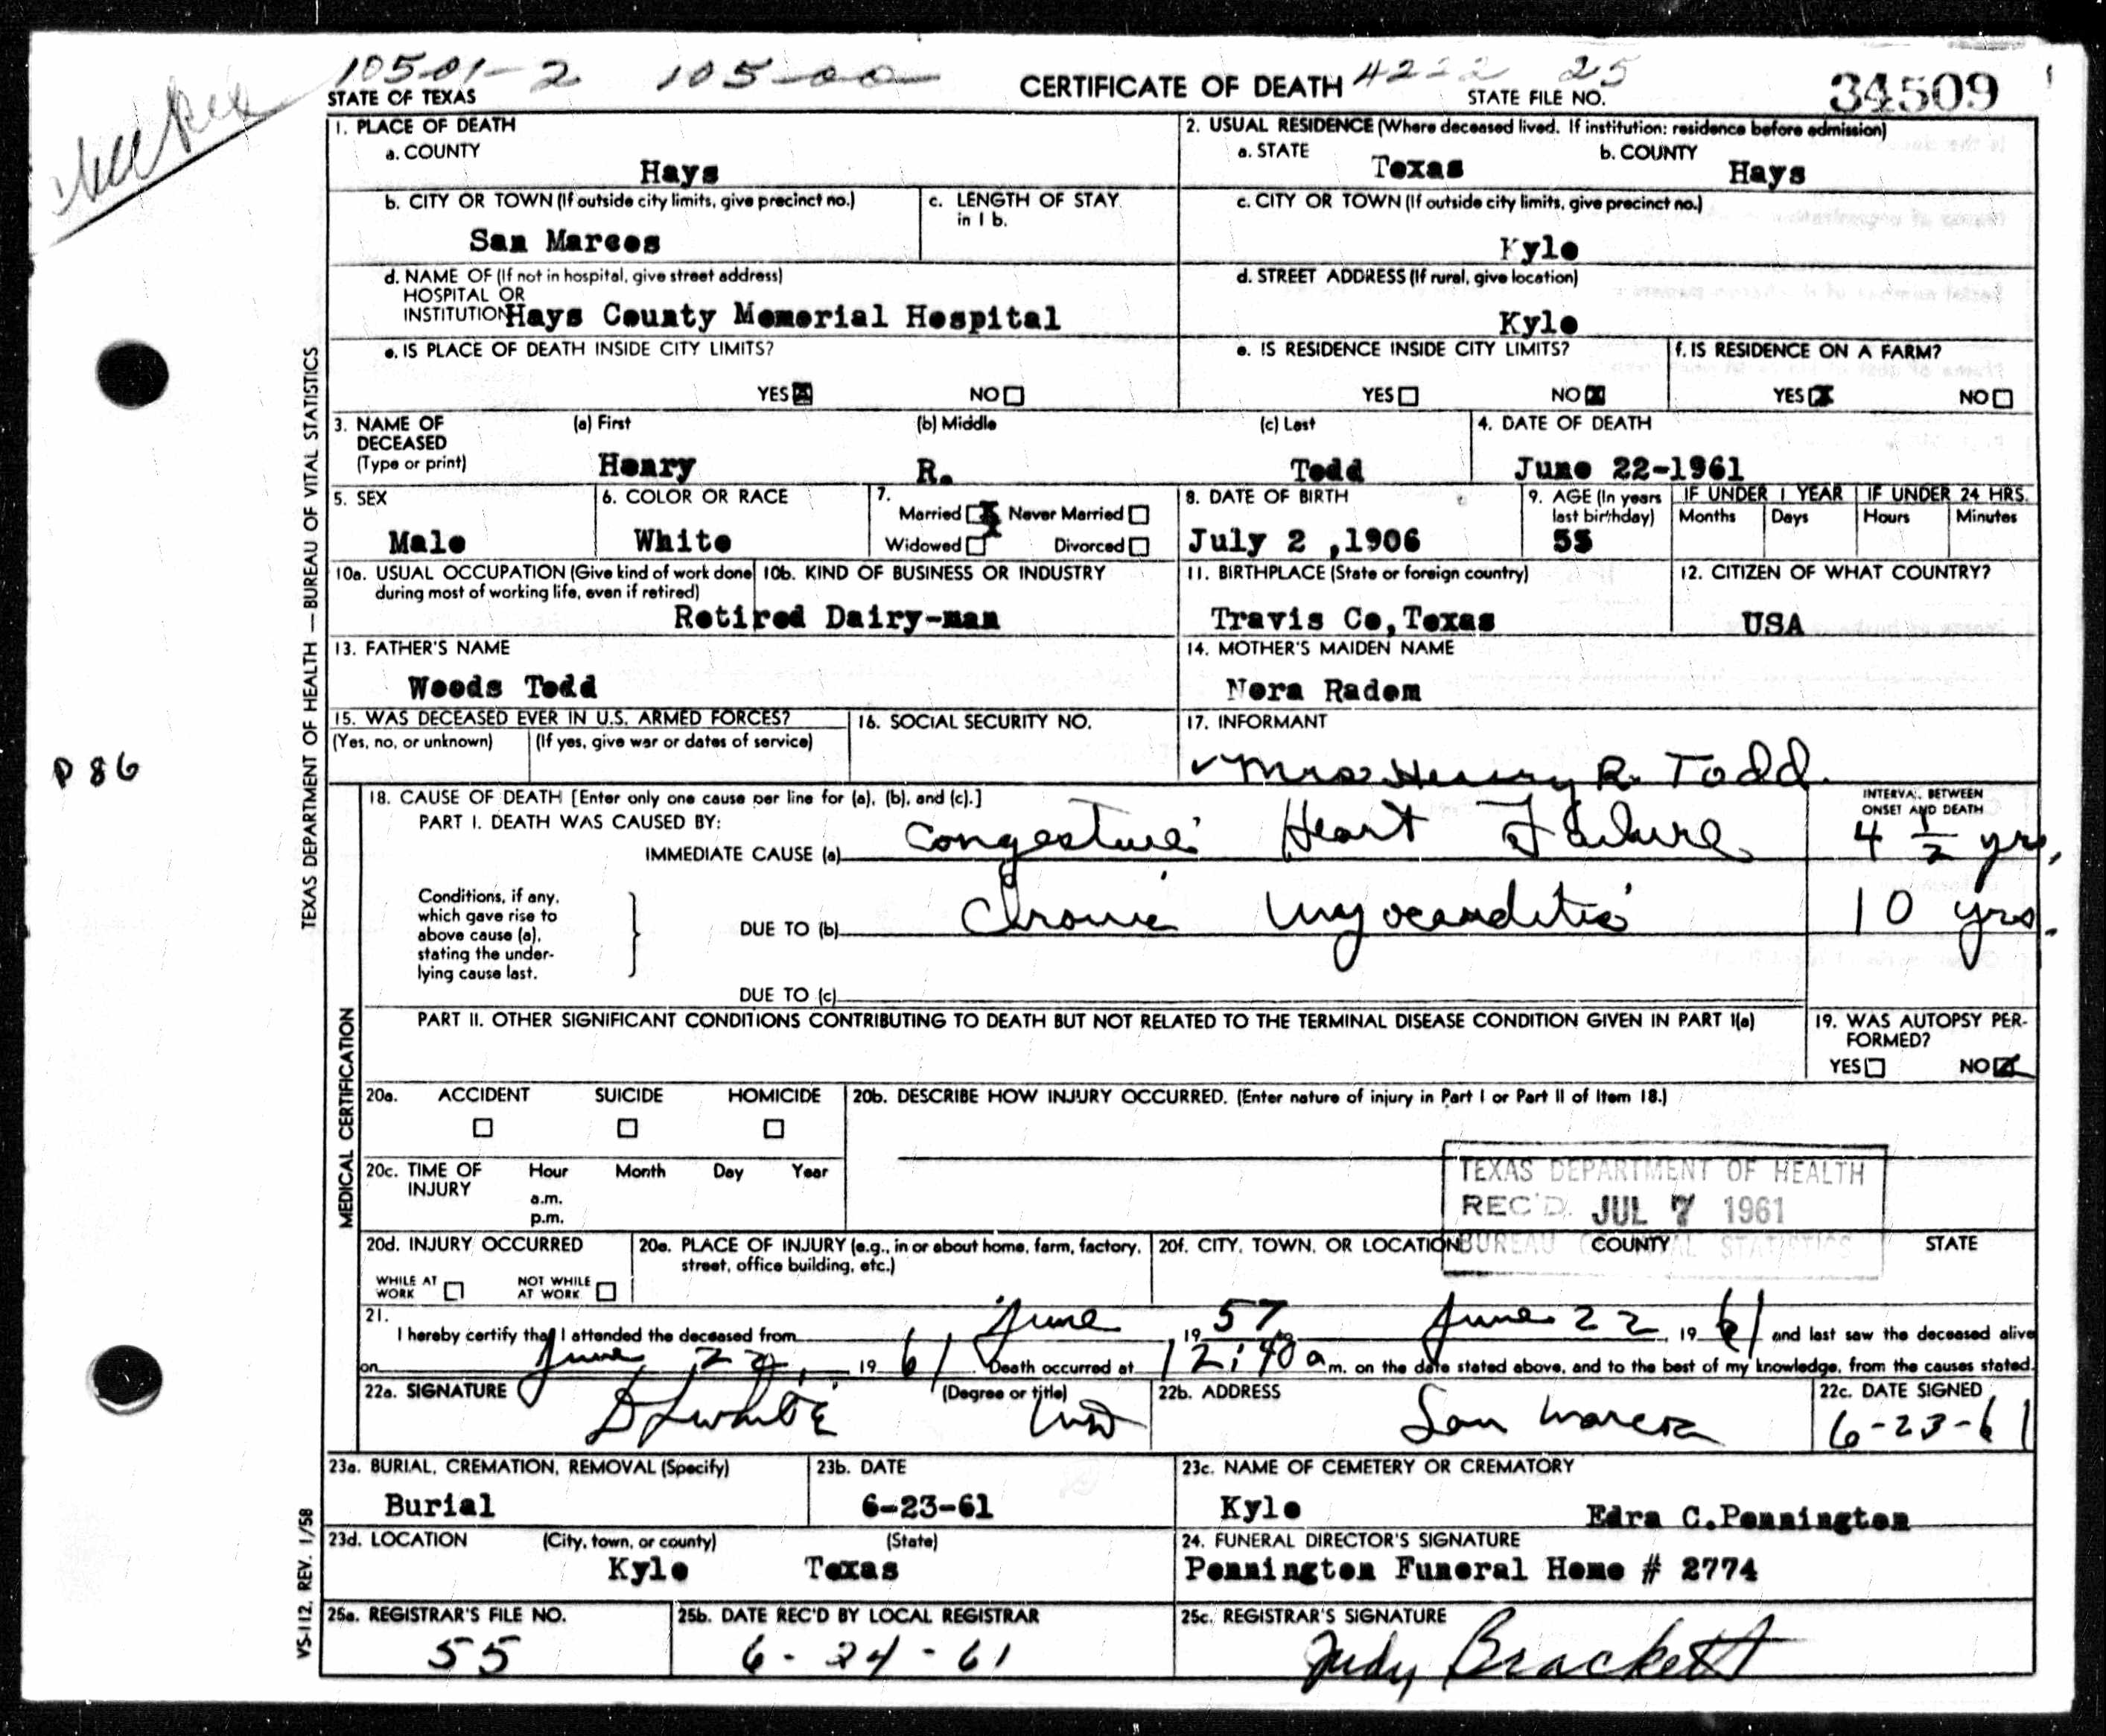 10501-2 105-00 CERTIFICATE OF DEATH 4222 25 34509
STATE OF TEXAS STATE FILE NO.
1. PLACE OF DEATH
a. COUNTY
Hays
2. USUAL RESIDENCE (Where deceased lived. If institution: residence before admission)
a. STATE Texas b. COUNTY Hays
b. CITY OR TOWN (If outside city limits, give precinct no.)
San Marcos
c. LENGTH OF STAY
in 1 b.
c. CITY OR TOWN (If outside city limits, give precinct no.)
Kyle
d. NAME OF (If not in hospital, give street address)
HOSPITAL OR
INSTITUTION Hays County Memorial Hospital
d. STREET ADDRESS (If rural, give location)
Kyle
e. IS PLACE OF DEATH INSIDE CITY LIMITS?
YES NO
e. IS RESIDENCE INSIDE CITY LIMITS?
YES NO
f. IS RESIDENCE ON A FARM?
YES NO
3. NAME OF DECEASED
(Type or print)
(a) First (b) Middle (c) Last
Henry R. Todd
4. DATE OF DEATH
June 22-1961
5. SEX
Male
6. COLOR OR RACE
White
7.
Married Never Married
Widowed Divorced
8. DATE OF BIRTH
July 2 ,1906
9. AGE (In years
last birthday)
55
IF UNDER 1 YEAR IF UNDER 24 HRS.
Months Days Hours Minutes
10a. USUAL OCCUPATION (Give kind of work done
during most of working life, even if retired)
10b. KIND OF BUSINESS OR INDUSTRY
Retired Dairy-man
11. BIRTHPLACE (State or foreign country)
Travis Co,Texas
12. CITIZEN OF WHAT COUNTRY?
USA
13. FATHER'S NAME
Woods Todd
14. MOTHER'S MAIDEN NAME
Nora Radom
15. WAS DECEASED EVER IN U.S. ARMED FORCES?
(Yes, no, or unknown) (If yes, give war or dates of service)
16. SOCIAL SECURITY NO.
17. INFORMANT
Mrs Henry R. Todd.
18. CAUSE OF DEATH [Enter only one cause per line for (a), (b), and (c).]
PART I. DEATH WAS CAUSED BY:
IMMEDIATE CAUSE (a) Congestive Heart Failure
INTERVAL BETWEEN
ONSET AND DEATH
4 1/2 yrs.
Conditions, if any,
which gave rise to
above cause (a),
stating the under-
lying cause last.
DUE TO (b) Chronic Myocarditis
10 yrs.
DUE TO (c)
PART II. OTHER SIGNIFICANT CONDITIONS CONTRIBUTING TO DEATH BUT NOT RELATED TO THE TERMINAL DISEASE CONDITION GIVEN IN PART I(a)
19. WAS AUTOPSY PER-
FORMED?
YES NO
20a. ACCIDENT SUICIDE HOMICIDE
20b. DESCRIBE HOW INJURY OCCURRED. (Enter nature of injury in Part I or Part II of Item 18.)
20c. TIME OF
INJURY
Hour Month Day Year
a.m.
p.m.
TEXAS DEPARTMENT OF HEALTH
REC'D. JUL 7 1961
BUREAU OF VITAL STATISTICS
20d. INJURY OCCURRED
WHILE AT
WORK
NOT WHILE
AT WORK
20e. PLACE OF INJURY (e.g., in or about home, farm, factory,
street, office building, etc.)
20f. CITY, TOWN, OR LOCATION COUNTY STATE
21.
I hereby certify that I attended the deceased from June 19 57 to June 22, 19 61 and last saw the deceased alive
on June 22, 19 61 Death occurred at 12:40 a m. on the date stated above, and to the best of my knowledge, from the causes stated.
22a. SIGNATURE (Degree or title)
MD
22b. ADDRESS
San Marcos
22c. DATE SIGNED
6-23-61
23a. BURIAL, CREMATION, REMOVAL (Specify)
Burial
23b. DATE
6-23-61
23c. NAME OF CEMETERY OR CREMATORY
Kyle
Edra C.Pennington
23d. LOCATION (City, town, or county) (State)
Kyle Texas
24. FUNERAL DIRECTOR'S SIGNATURE
Pennington Funeral Home # 2774
25a. REGISTRAR'S FILE NO.
55
25b. DATE REC'D BY LOCAL REGISTRAR
6-24-61
25c. REGISTRAR'S SIGNATURE
Judy Brackett
TEXAS DEPARTMENT OF HEALTH — BUREAU OF VITAL STATISTICS
MEDICAL CERTIFICATION
VS-112, REV. 1/58
P 86